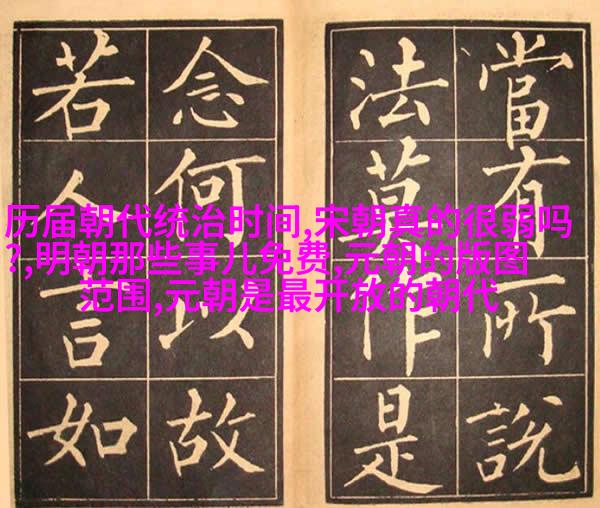 當有所說
法莫作是
念何以故
若人言如
历届朝代统治时间,宋朝真的很弱吗
?,明朝那些事儿免费,元朝的版图
范围,元朝是最开放的朝代